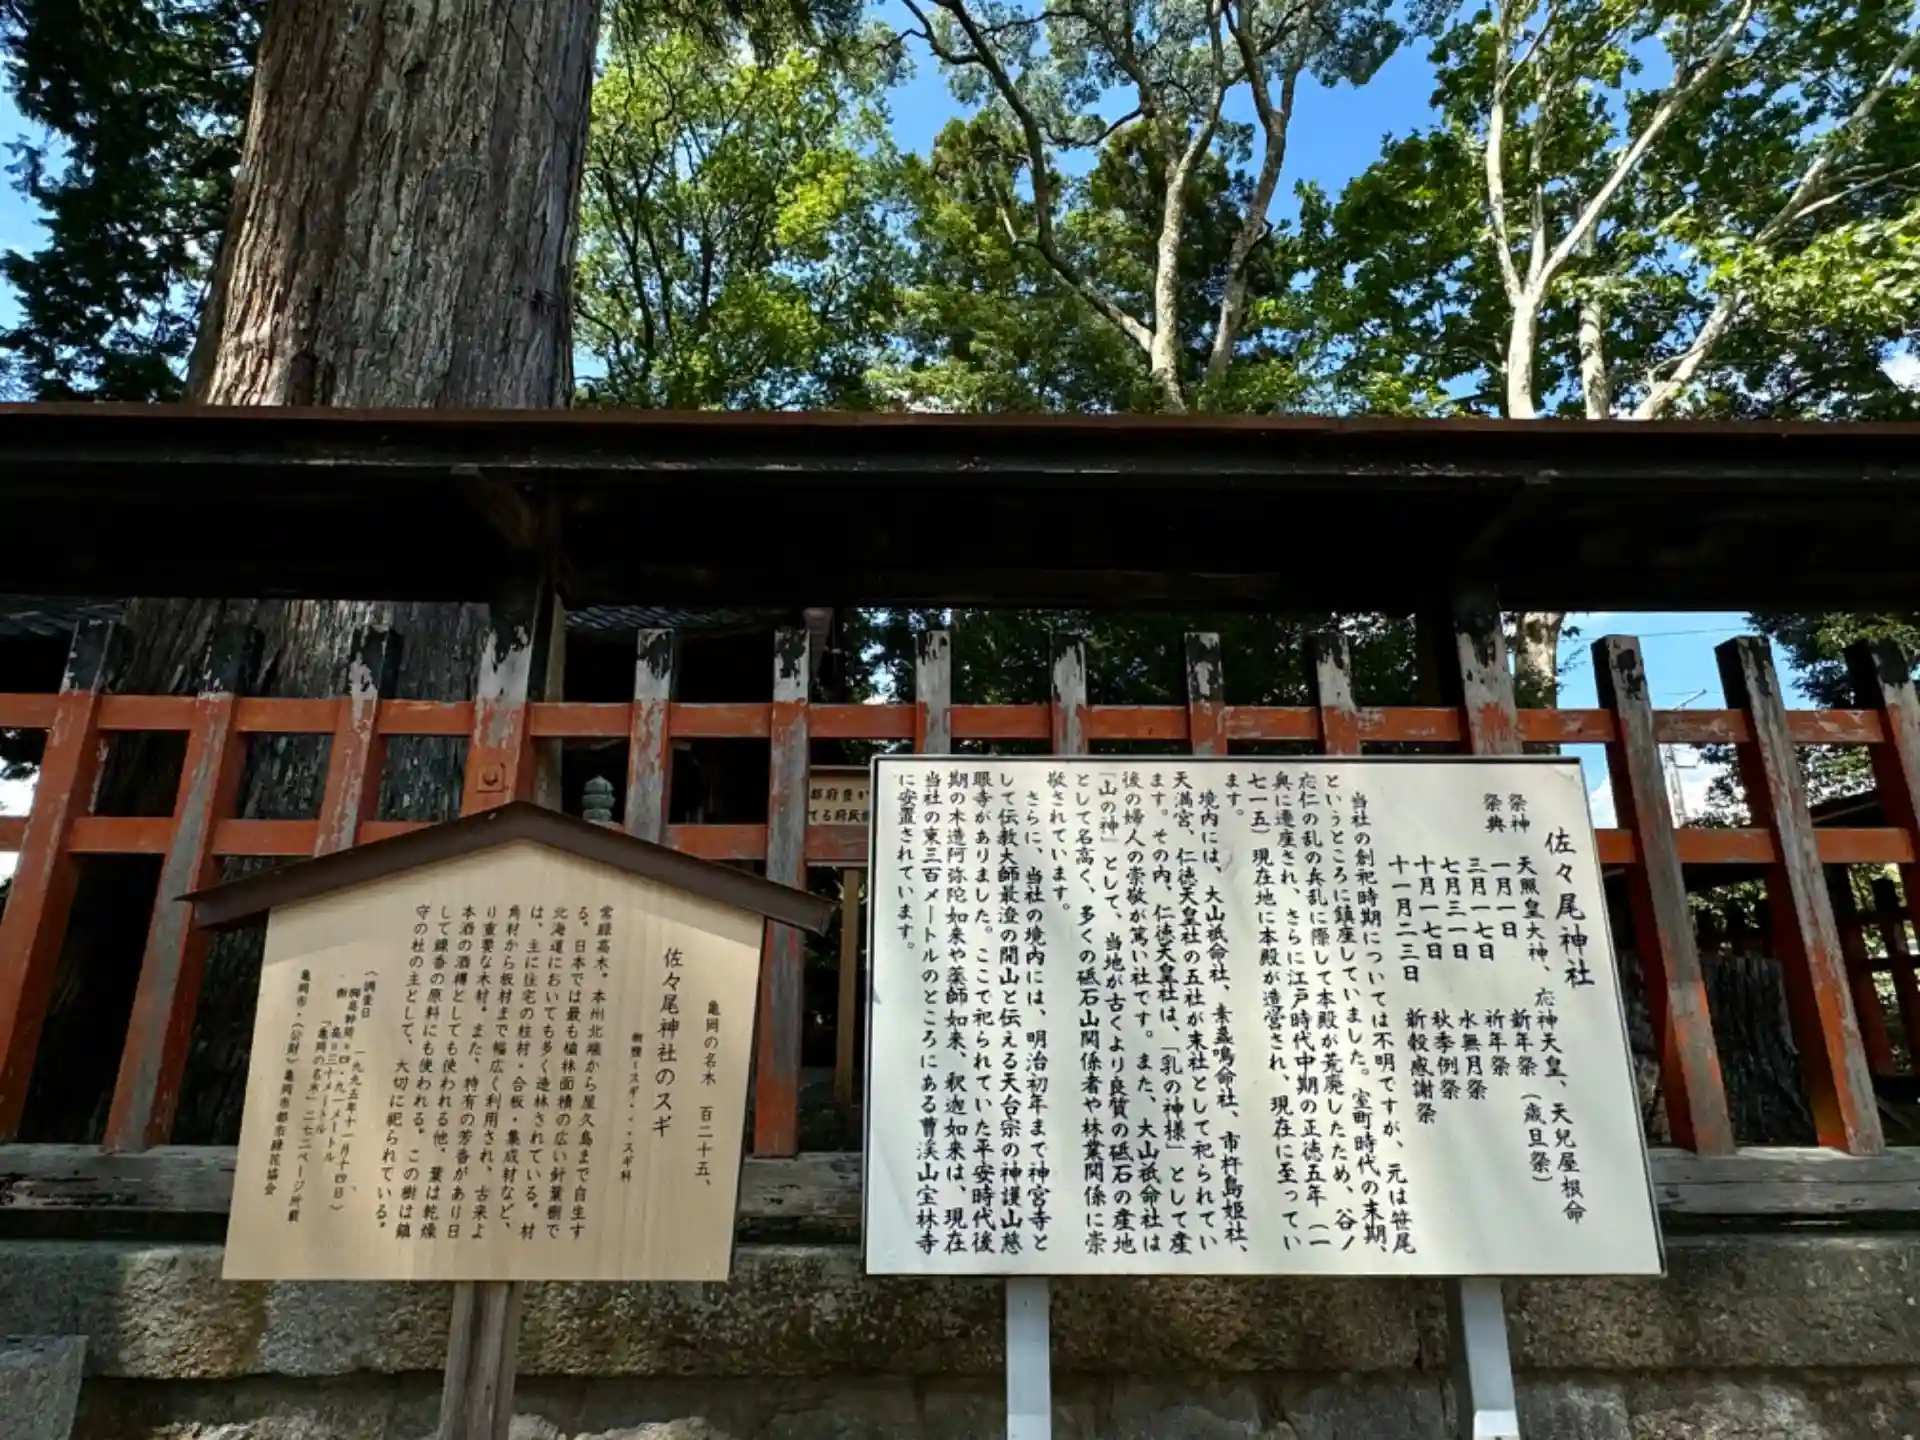 佐々尾神社
祭神　天照皇大神、応神天皇、天兒屋根命
祭典　一月一日　新年祭（歳旦祭）
三月一七日　祈年祭
七月三一日　水無月祭
十月一七日　秋季例祭
十一月二三日　新穀感謝祭
当社の創祀時期については不明ですが、元は笹尾
というところに鎮座していました。室町時代の末期、
応仁の乱の兵乱に際して本殿が荒廃したため、谷ノ
奥に遷座され、さらに江戸時代中期の正徳五年（一
七一五）現在地に本殿が造営され、現在に至ってい
ます。
境内には、大山祇命社、素盞嗚命社、市杵島姫社、
天満宮、仁徳天皇社の五社が末社として祀られてい
ます。その内、仁徳天皇社は、「乳の神様」として産
後の婦人の崇敬が篤い社です。また、大山祇命社は
「山の神」として、当地が古くより良質の砥石の産地
として名高く、多くの砥石山関係者や林業関係に崇
敬されています。
さらに、当社の境内には、明治初年まで神宮寺と
して伝教大師最澄の開山と伝える天台宗の神護山慈
眼寺がありました。ここで祀られていた平安時代後
期の木造阿弥陀如来や薬師如来、釈迦如来は、現在
当社の東三百メートルのところにある曹渓山宝林寺
に安置されています。
亀岡の名木　百二十五、
佐々尾神社のスギ
樹種＝スギ・・・スギ科
常緑高木。本州北端から屋久島まで自生す
る。日本では最も植林面積の広い針葉樹で
北海道においても多く造林されている。材
は、主に住宅の柱材・合板・集成材など、
角材から板材まで幅広く利用され、古来よ
り重要な木材。また、特有の芳香があり日
本酒の酒樽としても使われる他、葉は乾燥
して線香の原料にも使われる。この樹は鎮
守の杜の主として、大切に祀られている。
（調査日　一九九五年十一月十四日）
胸高幹周＝四・九一メートル、
樹　高＝三十メートル
「亀岡の名木」二七二ページ所載
亀岡市・（公財）亀岡市都市緑花協会